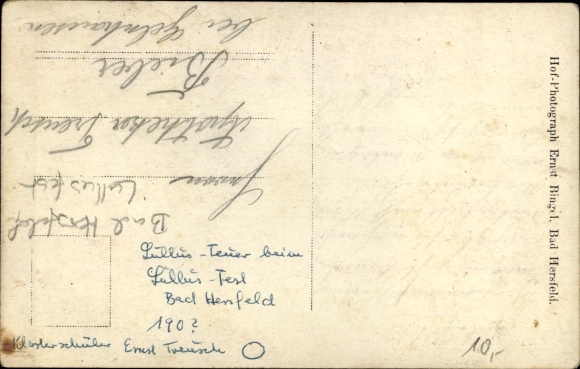 Hof-Photograph Ernst Bingel, Bad Hersfeld.
Herrn
Apotheker Treusch
Bieber
bei Gelnhausen
Bad Hersfeld
Lullusfest
Lullus-Feuer beim
Lullus-Fest
Bad Hersfeld
190?
Klosterschüler Ernst Treusch
10,-